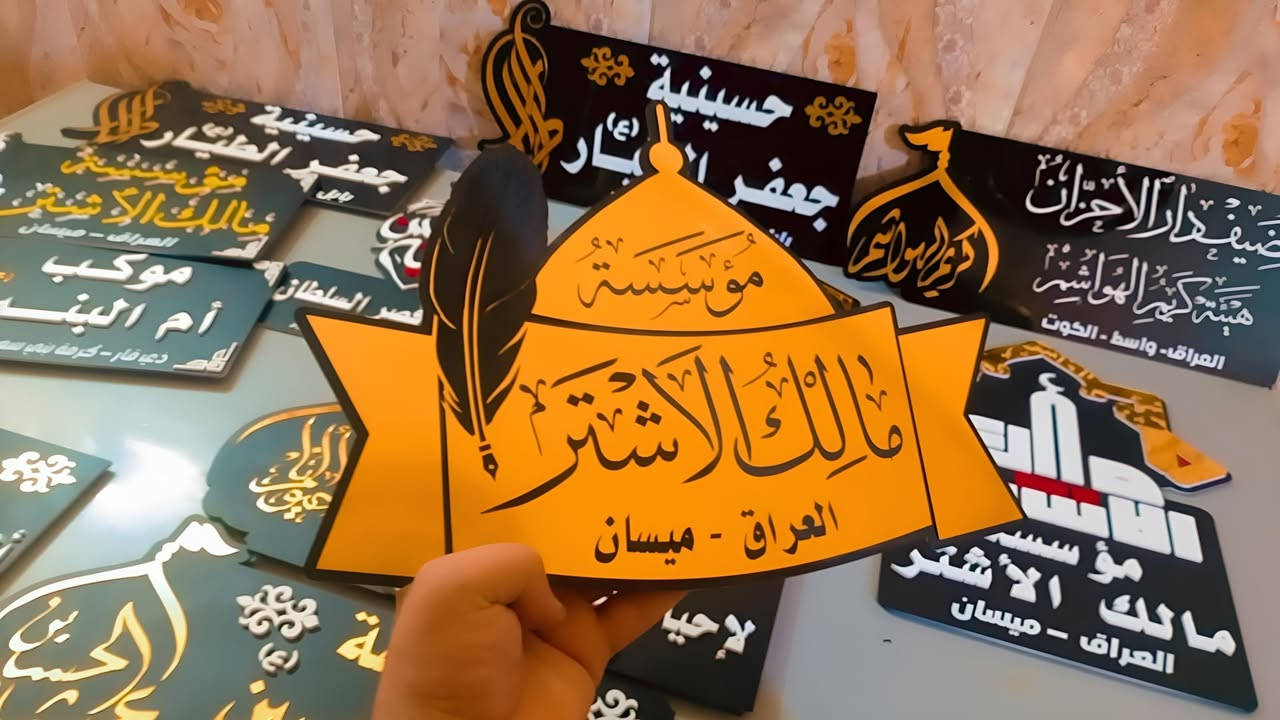 مؤسسة
مالك الاشتر
العراق - ميسان
حسينية
جعفر الطيار (ع)
بابل
مؤسسة
مالك الاشتر
العراق - ميسان
موكب
أم البنـ
ذي قار - كرمة بني سـ
قصر السلطان
حسينية
جعفر الطيار (ع)
كريم الهواشم
مضيف دار الأحزان
هيئة كريم الهواشم
العراق - واسط - الكوت
مؤسسة
مالك الأشتر
العراق - ميسان
لإحيا
الحسين
(ع)